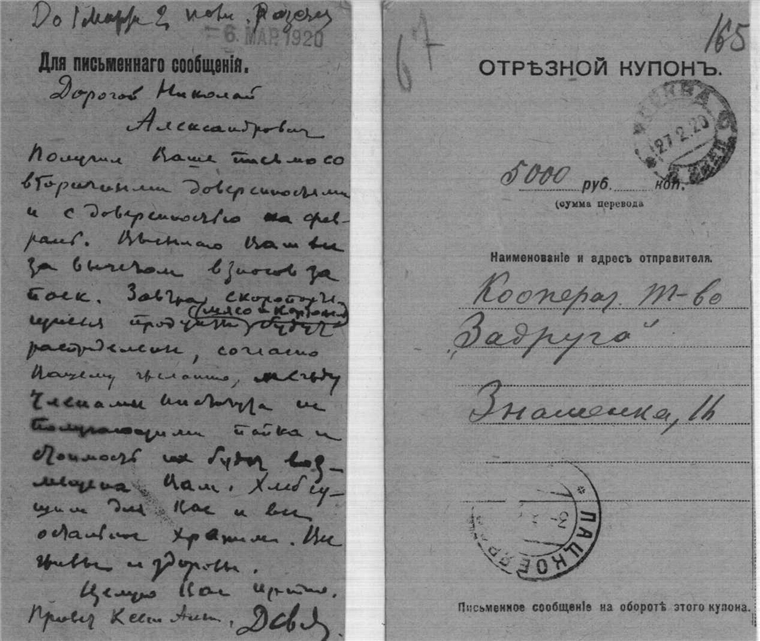 До 1 марта
6 МАР. 1920
Для письменнаго сообщенія.
Дорогой Николай
Александрович
Получил Ваше письмо со
вторичными доверенностями
и с доверенностью на фев-
раль. Высылаю Вам
за вычетом взносов за
паек. Завтра скоропортя-
(мясо и
щиеся продукты будут
распределены, согласно
Вашему желанию, между
членами
получающими пайка и
стоимость их будет воз-
мещена Вам. Хлеб су-
шим для Вас и все
остальное храним.
живы и здоровы.
Целую Вас крепко.
Привет
67
165
ОТРѢЗНОЙ КУПОНЪ.
МОСКВА
27.2.20
5000 руб. коп.
(сумма перевода
Наименованіе и адресъ отправителя.
Коопера. т-во
„Задруга"
Знаменка, 11
ПАЦКОЕ
Письменное сообщеніе на оборотѣ этого купона.